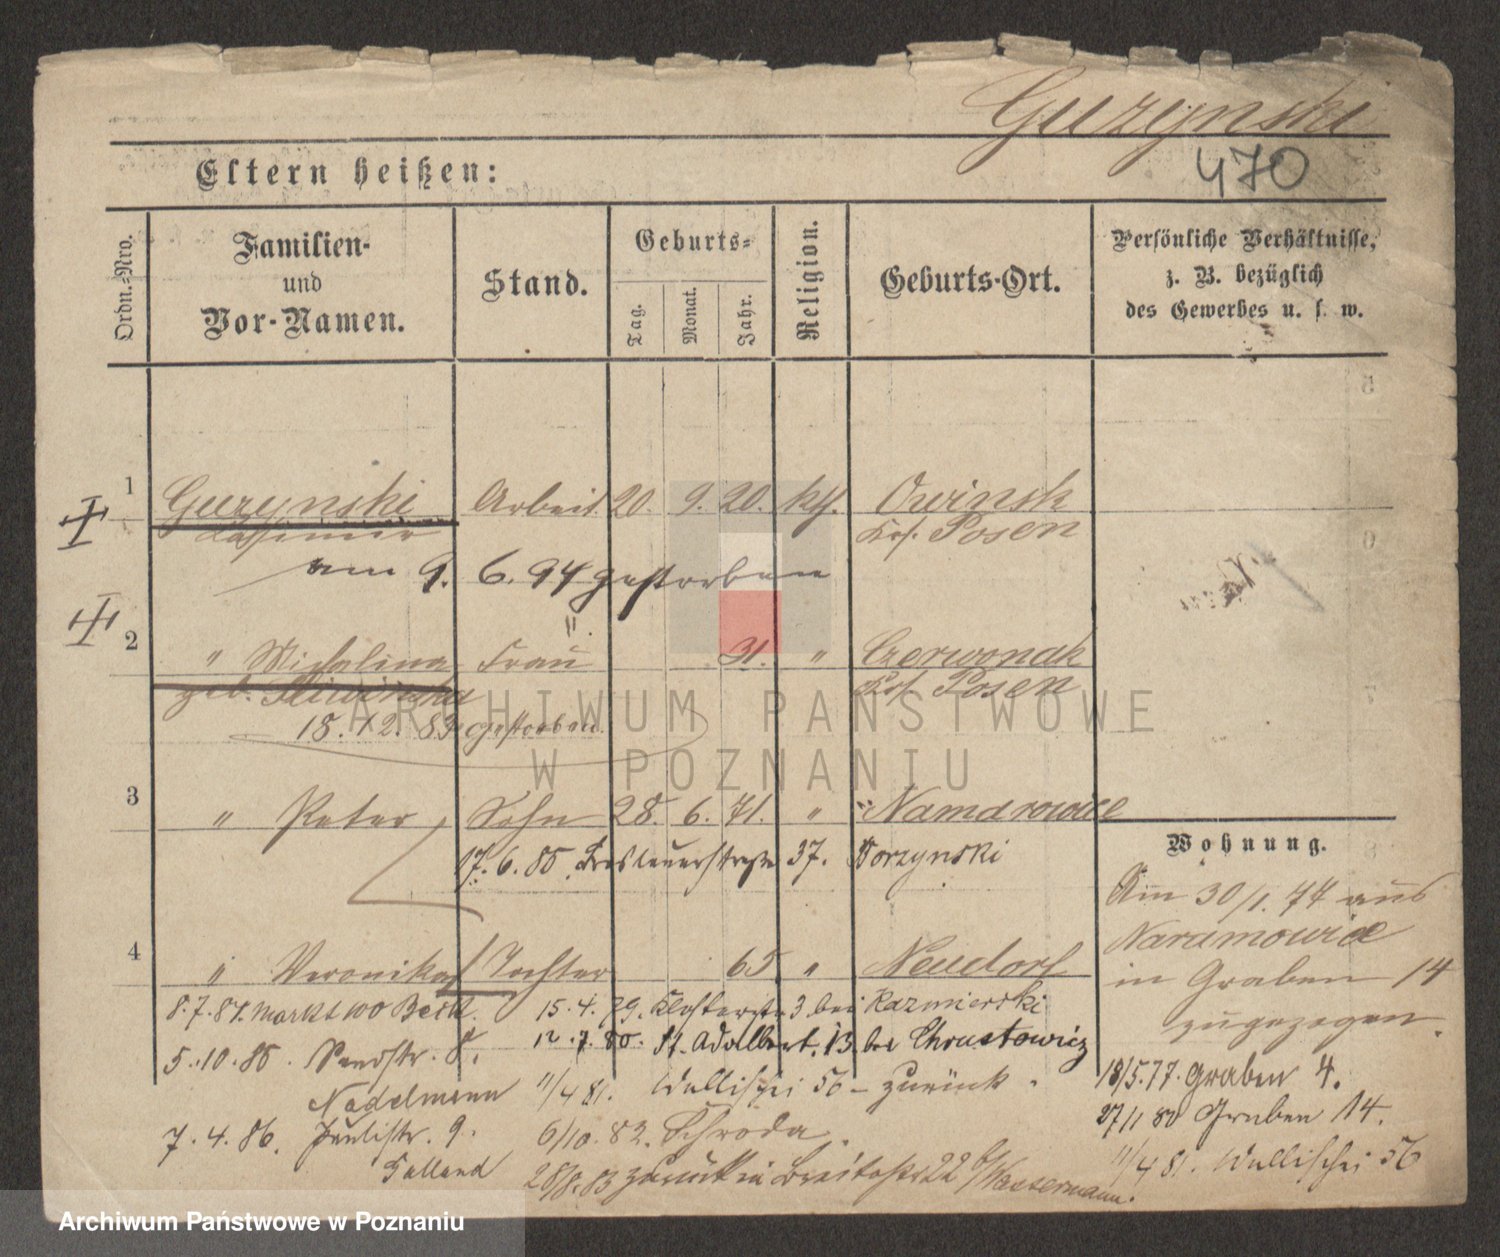 Guzynski
470
Eltern heißen:
Ordn.-Nro.
Familien-
und
Vor-Namen.
Stand.
Geburts-
Tag.
Monat.
Jahr.
Religion.
Geburts-Ort.
Persönliche Verhältnisse,
z. B. bezüglich
des Gewerbes u. s. w.
1 Guzynski Arbeit. 20. 9. 20. kth. Owinsk
Casimir Krs. Posen
am 9. 6. 94 gestorben
2 " Michalina Frau 31. " Czerwonak
geb. Krs. Posen
18. 12. 83 gestorben
3 " Peter Sohn 28. 6. 71. "
17. 6. 85. Breslauerstraße 37. Borzynski
4 " Veronika Tochter 65 " Neudorf
Wohnung.
Am 30/1. 77 aus
Naramowice
in Graben 14
zugezogen.
18/5.77. Graben 4.
27/1 80 Gruben 14.
11/4 81. Wallischei 56
8.7.84.
15.4.79. Klosterstr 3 bei Kazmierski
5.10.85
12.7.80. St. Adalbert. 13 bei Chrustowicz
Nadelmann
11/4 81. Wallischei 56 - zurück.
7.4.86. Paulistr. 9.
6/10.82. Schroda.
28/8.83 zurück in Breitestr 22 b/Wassermann.
ARCHIWUM PAŃSTWOWE
W POZNANIU
Archiwum Państwowe w Poznaniu